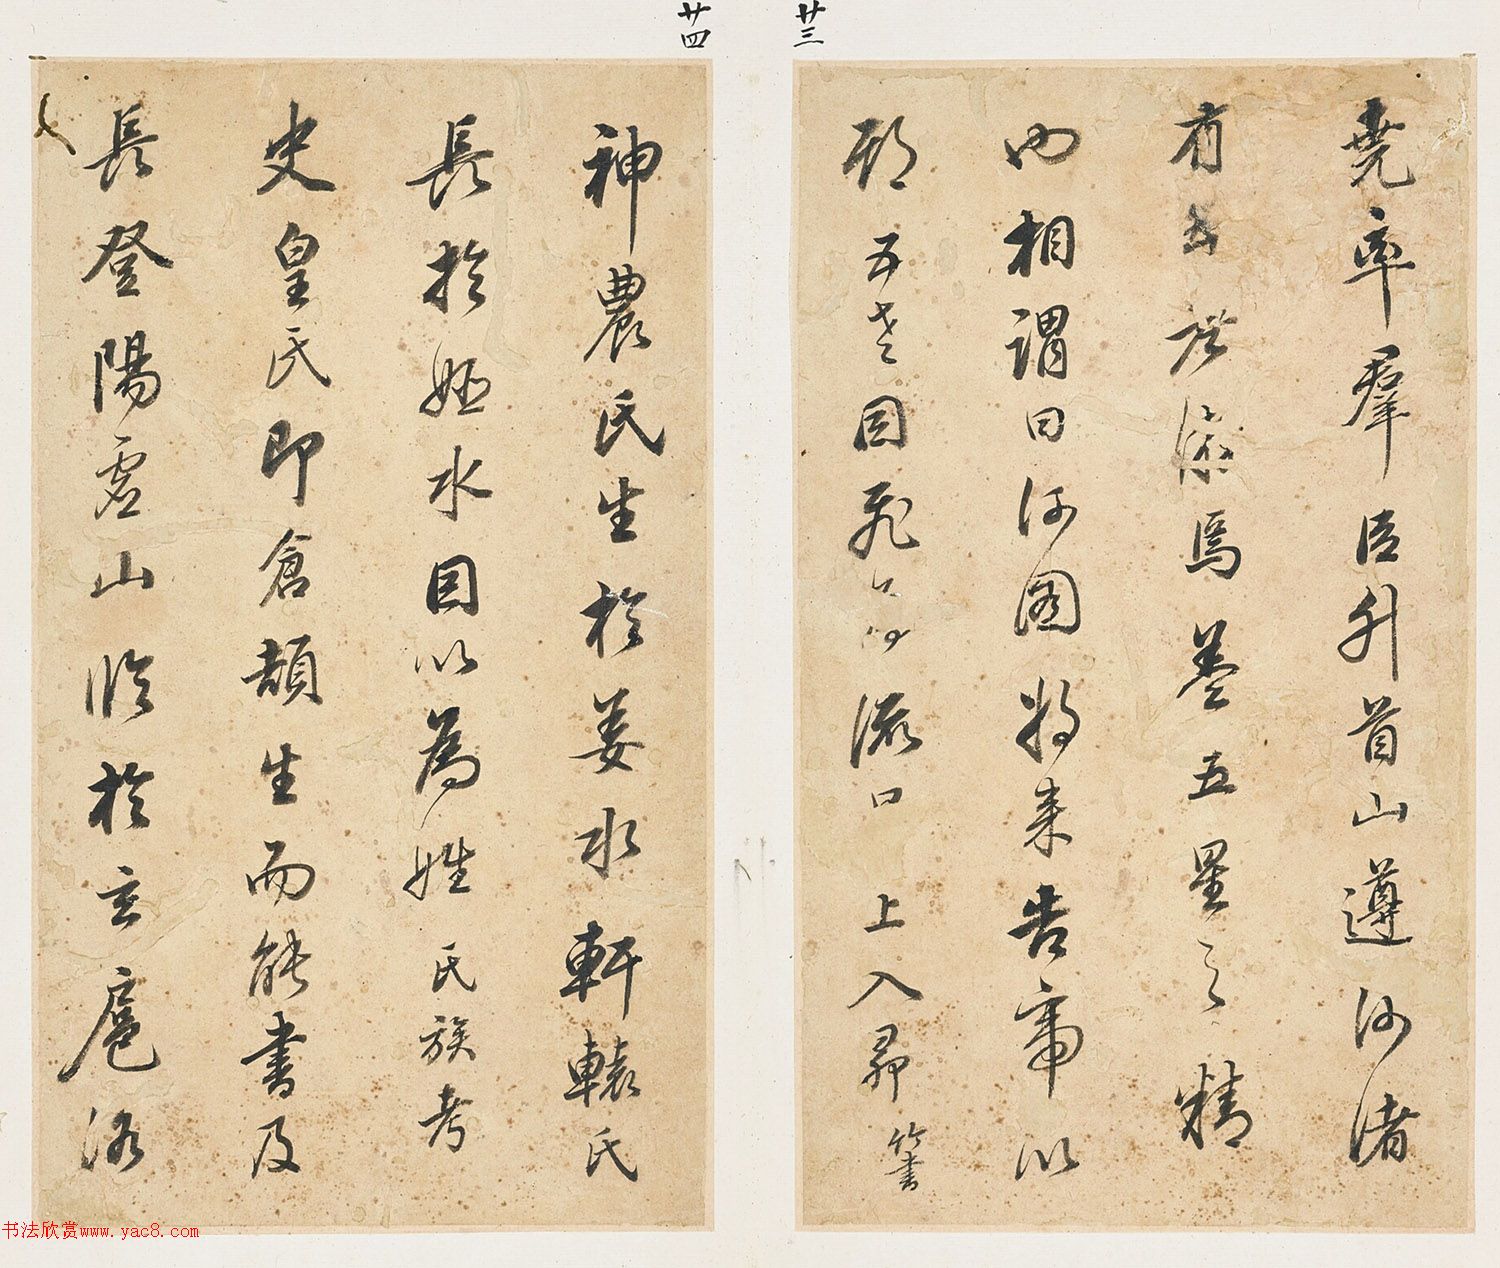 廿三
堯率羣臣升首山遵河渚
有五老游焉蓋五星之精
也相謂曰河圖將来告帝以
期五老因飛為流口上入昴竹書
廿四
神農氏生於姜水軒轅氏
長於姬水因以為姓氏族考
史皇氏即倉頡生而能書及
長登陽虛山臨於玄扈洛
书法欣赏www.yac8.com